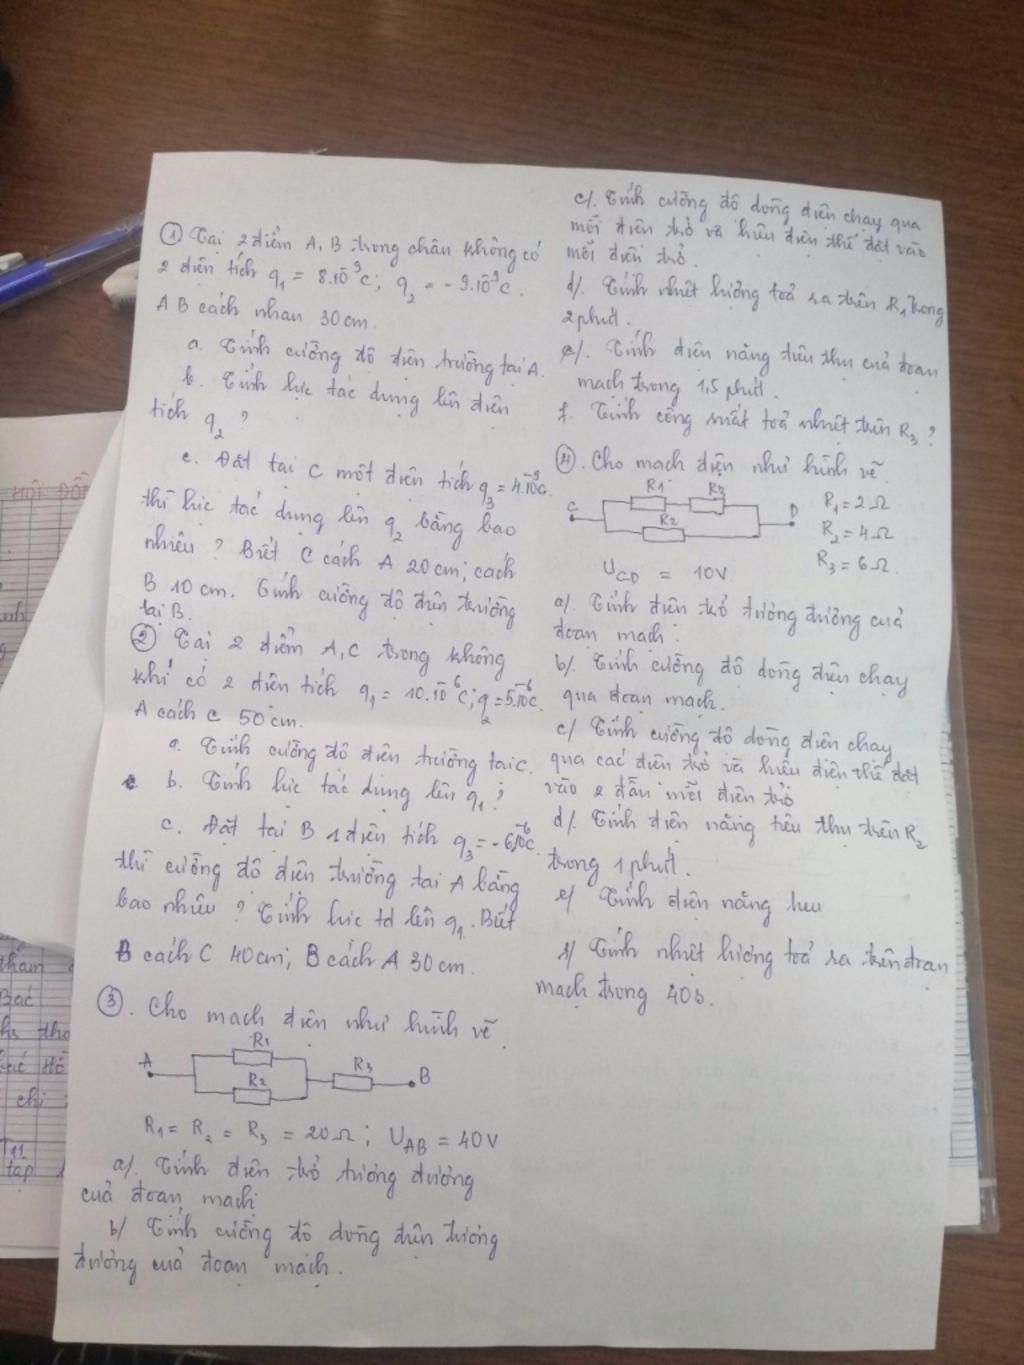 ① Tại 2 điểm A, B trong chân không có
2 điện tích q₁ = 8.10⁻⁹C; q₂ = -9.10⁻⁹C.
A B cách nhau 30cm.
a. Tính cường độ điện trường tại A.
b. Tính lực tác dụng lên điện
tích q₂?
c. Đặt tại C một điện tích q₃ = 4.10⁻⁹C.
thì lực tác dụng lên q₂ bằng bao
nhiêu? Biết C cách A 20cm; cách
B 10cm. Tính cường độ điện trường
tại B.
② Tại 2 điểm A, C trong không
khí có 2 điện tích q₁ = 10.10⁻⁶C; q₂ = 5.10⁻⁶C.
A cách C 50cm.
a. Tính cường độ điện trường tại C.
b. Tính lực tác dụng lên q₁?
c. Đặt tại B 1 điện tích q₃ = -6.10⁻⁶C.
thì cường độ điện trường tại A bằng
bao nhiêu? Tính lực td lên q₁. Biết
B cách C 40cm; B cách A 30cm.
③. Cho mạch điện như hình vẽ.
A R₁ R₂ R₃ B
R₁ = R₂ = R₃ = 20Ω; U_AB = 40V
a/. Tính điện trở tương đương
của đoạn mạch
b/ Tính cường độ dòng điện tương
đương của đoạn mạch.
c/. Tính cường độ dòng điện chạy qua
mỗi điện trở và hiệu điện thế đặt vào
mỗi điện trở.
d/. Tính nhiệt lượng toả ra trên R₁ trong
2 phút.
e/. Tính điện năng tiêu thụ của đoạn
mạch trong 1,5 phút.
f. Tính công suất toả nhiệt trên R₃?
④. Cho mạch điện như hình vẽ
C R₁ R₃ R₂ D
R₁ = 2Ω
R₂ = 4Ω
R₃ = 6Ω.
U_CD = 10V
a/. Tính điện trở tương đương của
đoạn mạch.
b/. Tính cường độ dòng điện chạy
qua đoạn mạch.
c/ Tính cường độ dòng điện chạy
qua các điện trở và hiệu điện thế đặt
vào 2 đầu mỗi điện trở
d/. Tính điện năng tiêu thụ trên R₂
trong 1 phút.
e/ Tính điện năng
f/ Tính nhiệt lượng toả ra trên đoạn
mạch trong 40s.